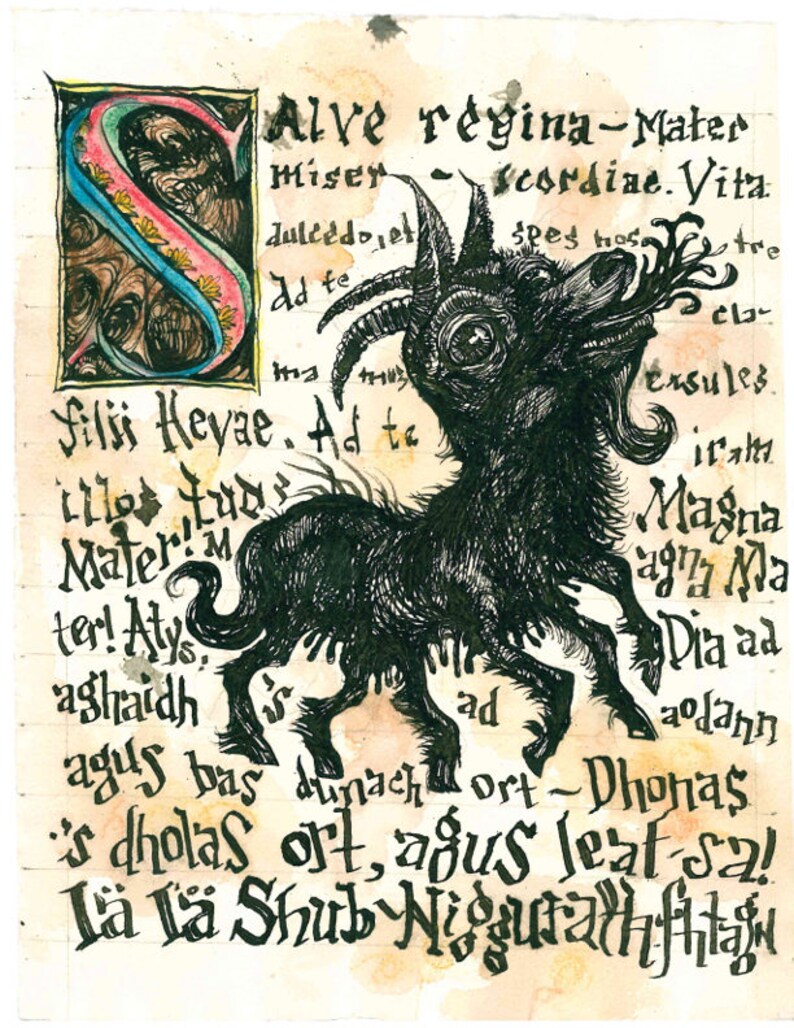 SAlve regina ~ Mater
miser - scordiae. Vita
dulcedo, et spes nos tre
Ad te cla-
ma mus exsules.
filii Hevae. Ad te iram
illos tuos Magna
Mater! M agna Ma
ter! Atys, Dia ad
aghaidh 's ad aodann
agus bas dunach ort ~ Dhonas
's dholas ort, agus leat-sa!
Iä Iä Shub~Niggurathhfhtagn